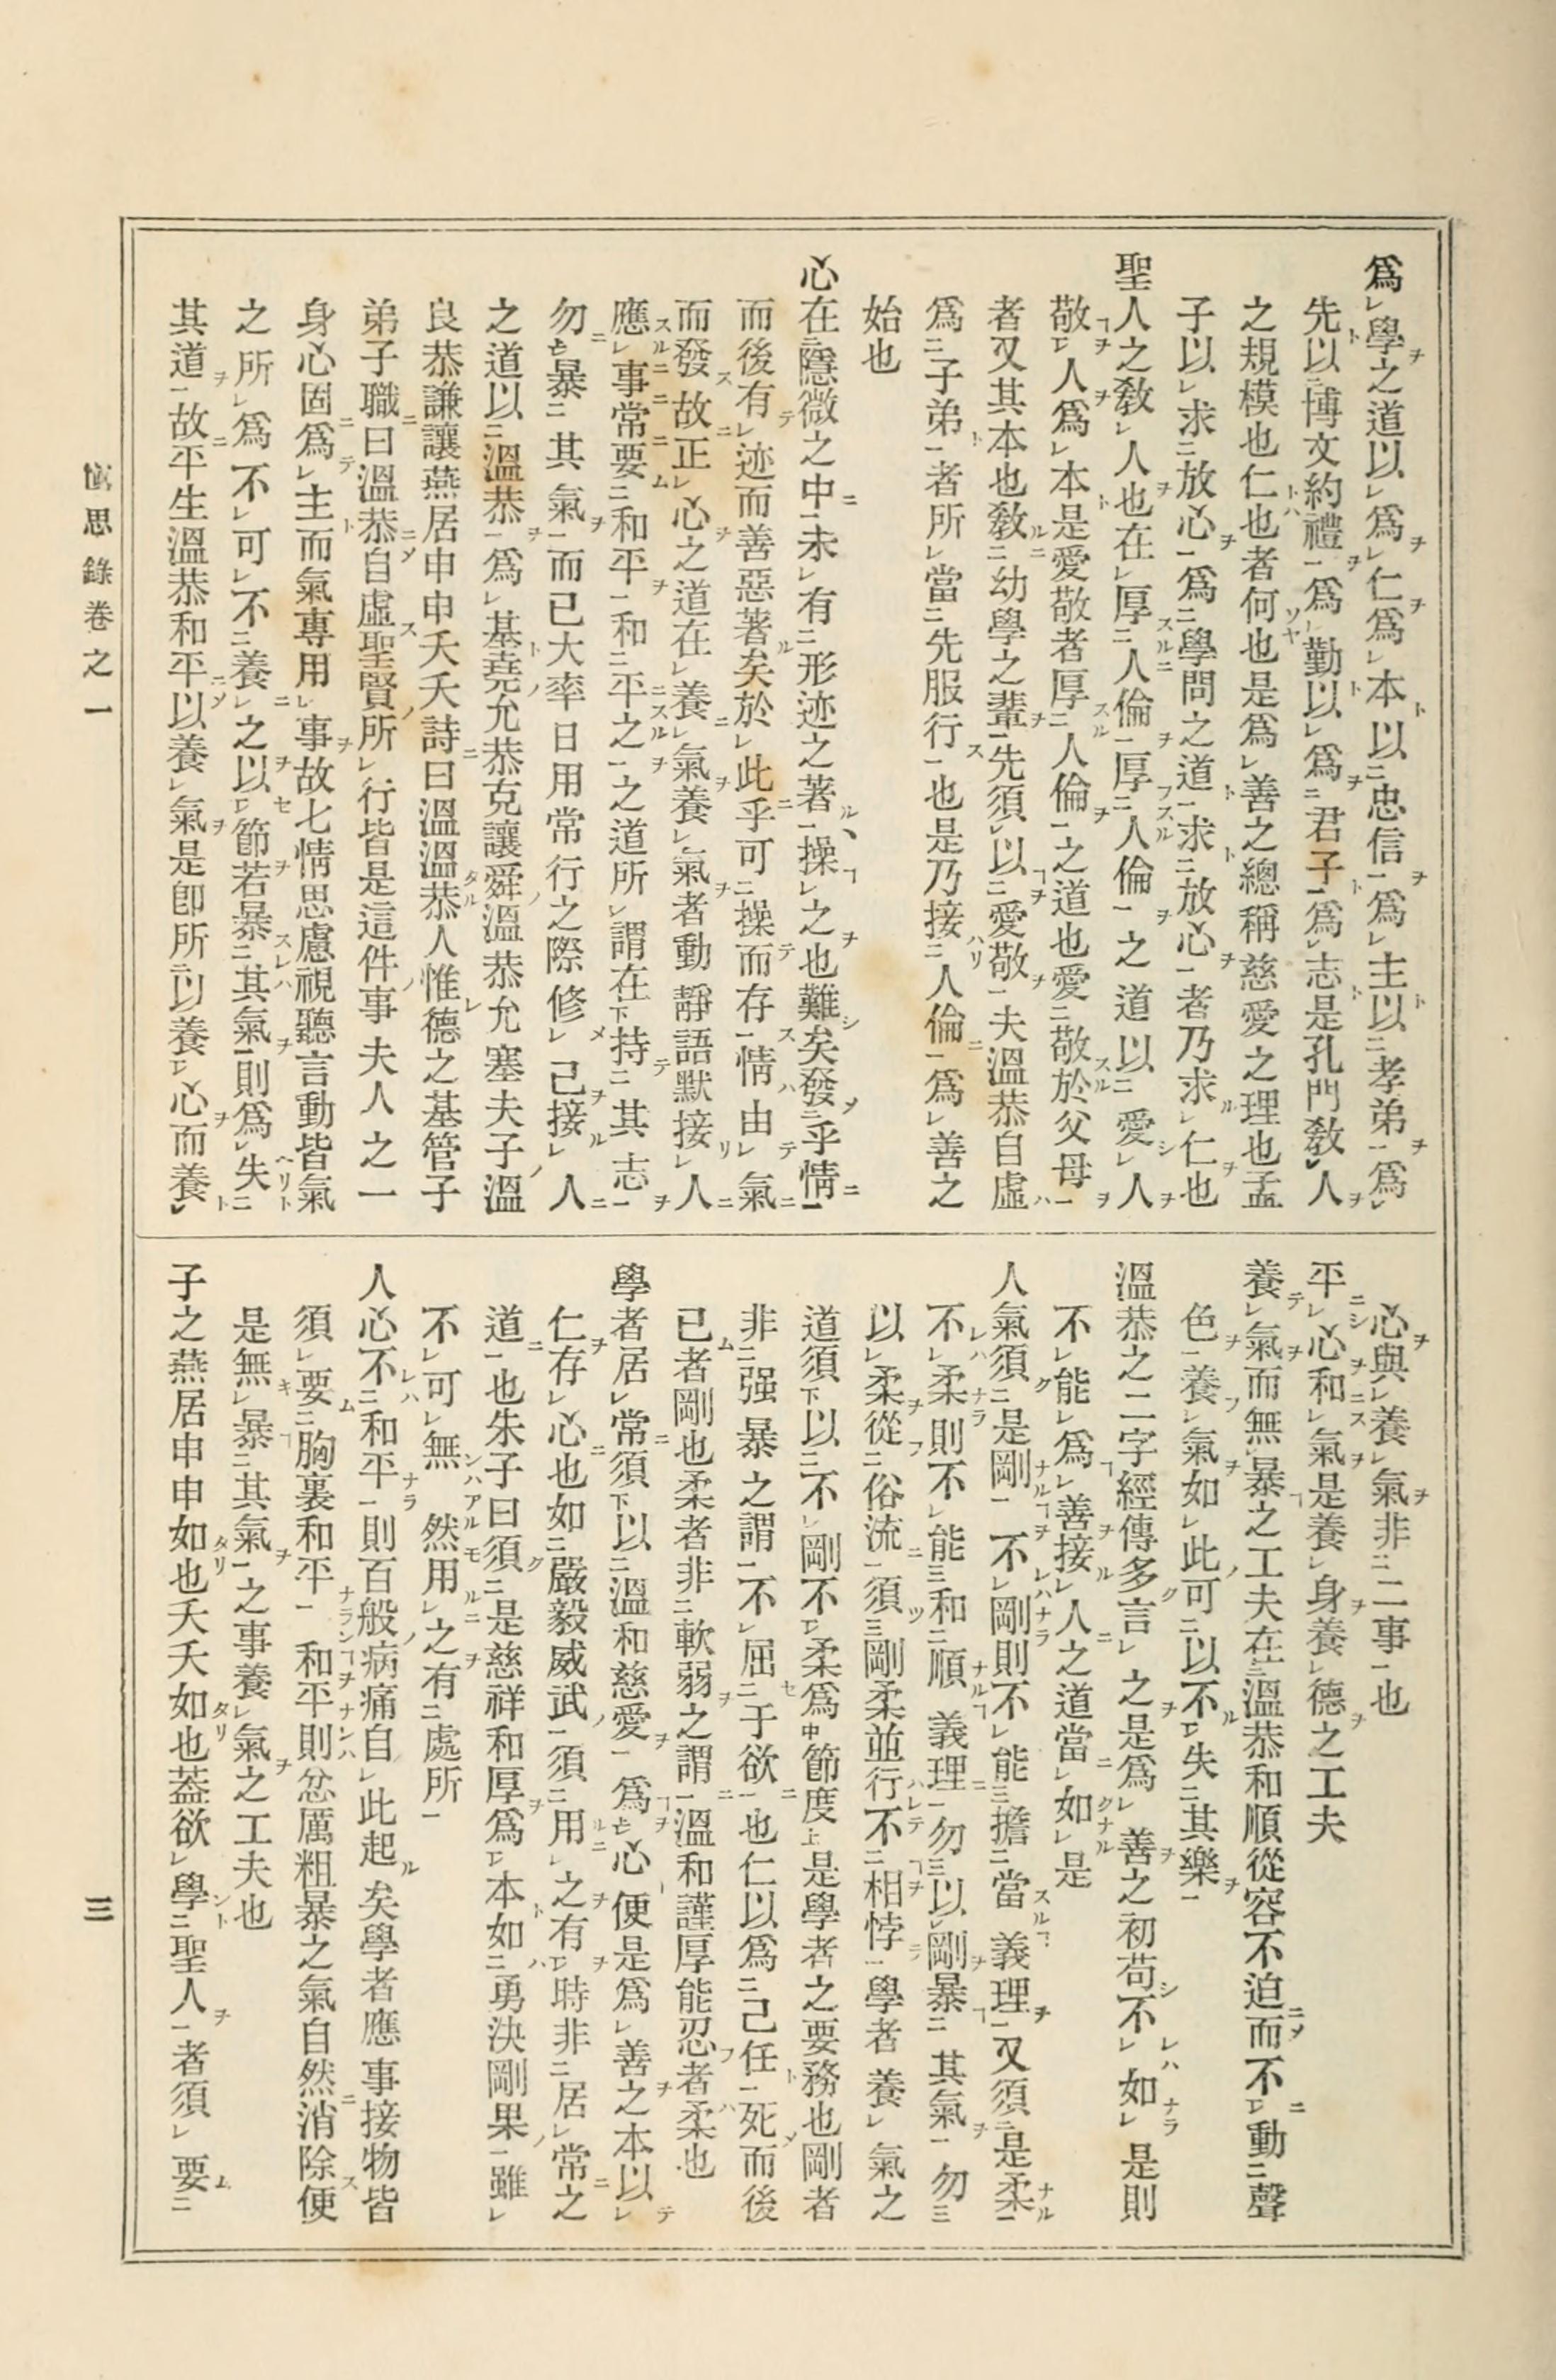 爲學之道以爲仁爲本以忠信爲主以孝弟爲
先以博文約禮爲勤以爲君子爲志是孔門敎人
之規模也仁也者何也是爲善之總稱慈愛之理也孟
子以求放心爲學問之道求放心者乃求仁也
聖人之敎人也在厚人倫厚人倫之道以愛人
敬人爲本是愛敬者厚人倫之道也愛敬於父母
者又其本也敎幼學之輩先須以愛敬夫溫恭自虛
爲子弟者所當先服行也是乃接人倫爲善之
始也
心在隱微之中未有形迹之著操之也難矣發乎情
而後有迹而善惡著矣於此乎可操而存情由氣
而發故正心之道在養氣養氣者動靜語默接人
應事常要和平和平之之道所謂在持其志
勿暴其氣而已大率日用常行之際修己接人
之道以溫恭爲基堯允恭克讓舜溫恭允塞夫子溫
良恭謙讓燕居申申夭夭詩曰溫溫恭人惟德之基管子
弟子職曰溫恭自虛聖賢所行皆是這件事夫人之一
身心固爲主而氣專用事故七情思慮視聽言動皆氣
之所爲不可不養之以節若暴其氣則爲失
其道故平生溫恭和平以養氣是卽所以養心而養
心與養氣非二事也
平心和氣是養身養德之工夫
養氣而無暴之工夫在溫恭和順從容不迫而不動聲
色養氣如此可以不失其樂
溫恭之二字經傳多言之是爲善之初苟不如是則
不能爲善接人之道當如是
人氣須是剛不剛則不能擔當義理又須是柔
不柔則不能和順義理勿以剛暴其氣勿
以柔從俗流須剛柔並行不相悖學者養氣之
道須以不剛不柔爲節度是學者之要務也剛者
非强暴之謂不屈于欲也仁以爲己任死而後
已者剛也柔者非軟弱之謂溫和謹厚能忍者柔也
學者居常須以溫和慈愛爲心便是爲善之本以
仁存心也如嚴毅威武須用之有時非居常之
道也朱子曰須是慈祥和厚爲本如勇決剛果雖
不可無然用之有處所
人心不和平則百般病痛自此起矣學者應事接物皆
須要胸裏和平和平則忿厲粗暴之氣自然消除便
是無暴其氣之事養氣之工夫也
子之燕居申申如也夭夭如也蓋欲學聖人者須要
愼思錄卷之一
三